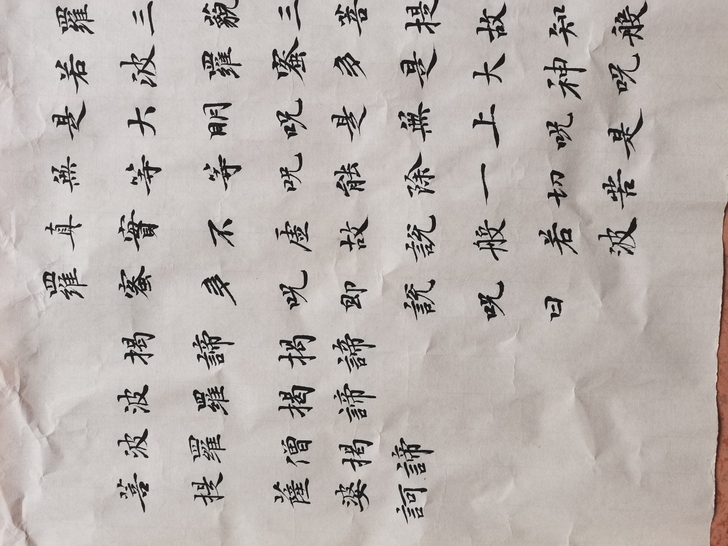 羅三藐三菩提故知般
若波羅蜜多是大神咒
是大明咒是無上咒是
無等等咒能除一切苦
真實不虛故說般若波
羅蜜多咒即說咒曰
揭諦揭諦
波羅揭諦
波羅僧揭諦
菩提薩婆訶